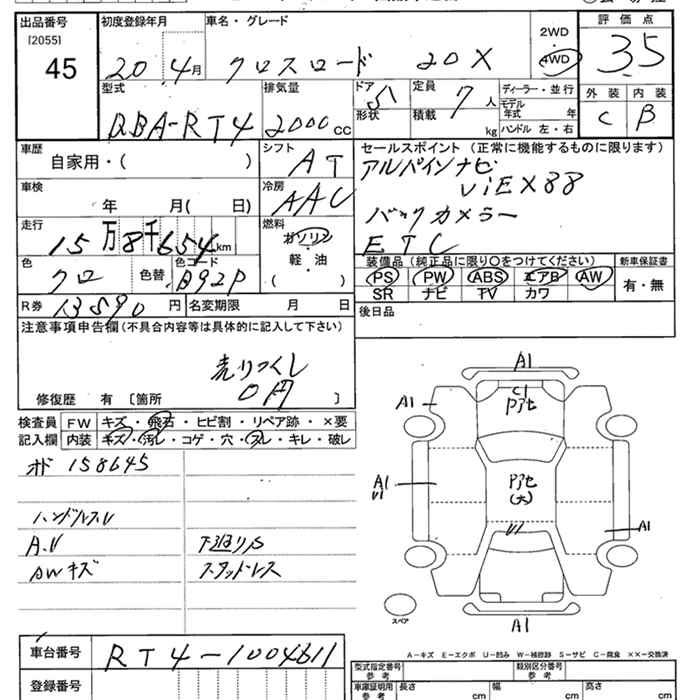 出品番号 初度登録年月 車名・グレード 2WD 評価点
[2055] 20年4月 クロスロード 20X 4WD 3.5
45
型式 排気量 ドア 定員 ディーラー・並行 外装 内装
DBA-RT4 2000cc 5 形状 7人 積載 kg モデル年式 年 C B
ハンドル 左・右
車歴 シフト セールスポイント (正常に機能するものに限ります)
自家用・( ) AT アルパインナビ
車検 冷房 ViEX88
年 月( 日) AAC バックカメラー
走行 燃料 ETC
15万8千654km ガソリン
軽・油
・( )
色 色替 色コード 装備品 (純正品に限り○をつけてください) 新車保証書
クロ B92P PS PW ABS エアB AW 有・無
SR ナビ TV カワ
R券 13890円 名変期限 月 日 後日品
注意事項申告欄(不具合内容等は具体的に記入して下さい)
売りつくし
0円
修復歴 有 〔箇所 〕
検査員 FW キズ・飛石・ヒビ割・リペア跡・×要
記入欄 内装 キズ・汚レ・コゲ・穴・スレ・キレ・破レ
オド 158645
ハンドルスレ
A.U 下廻りS
AWキズ スタッドレス
A1
A1 C1
Pアセ
A1 U1 Pアセ
(大)
U1 A1
スペア A1
A-キズ E-エクボ U-凹み W-補修跡 S-サビ C-腐食 ××-交換済
車台番号 RT4-1004611
登録番号
型式指定番号 参考 類別区分番号 参考
車庫証明用 参考 長さ cm 幅 cm 高さ cm